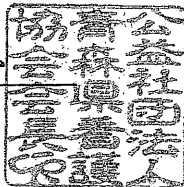 公益社団法人
青森県看護
協会会長印